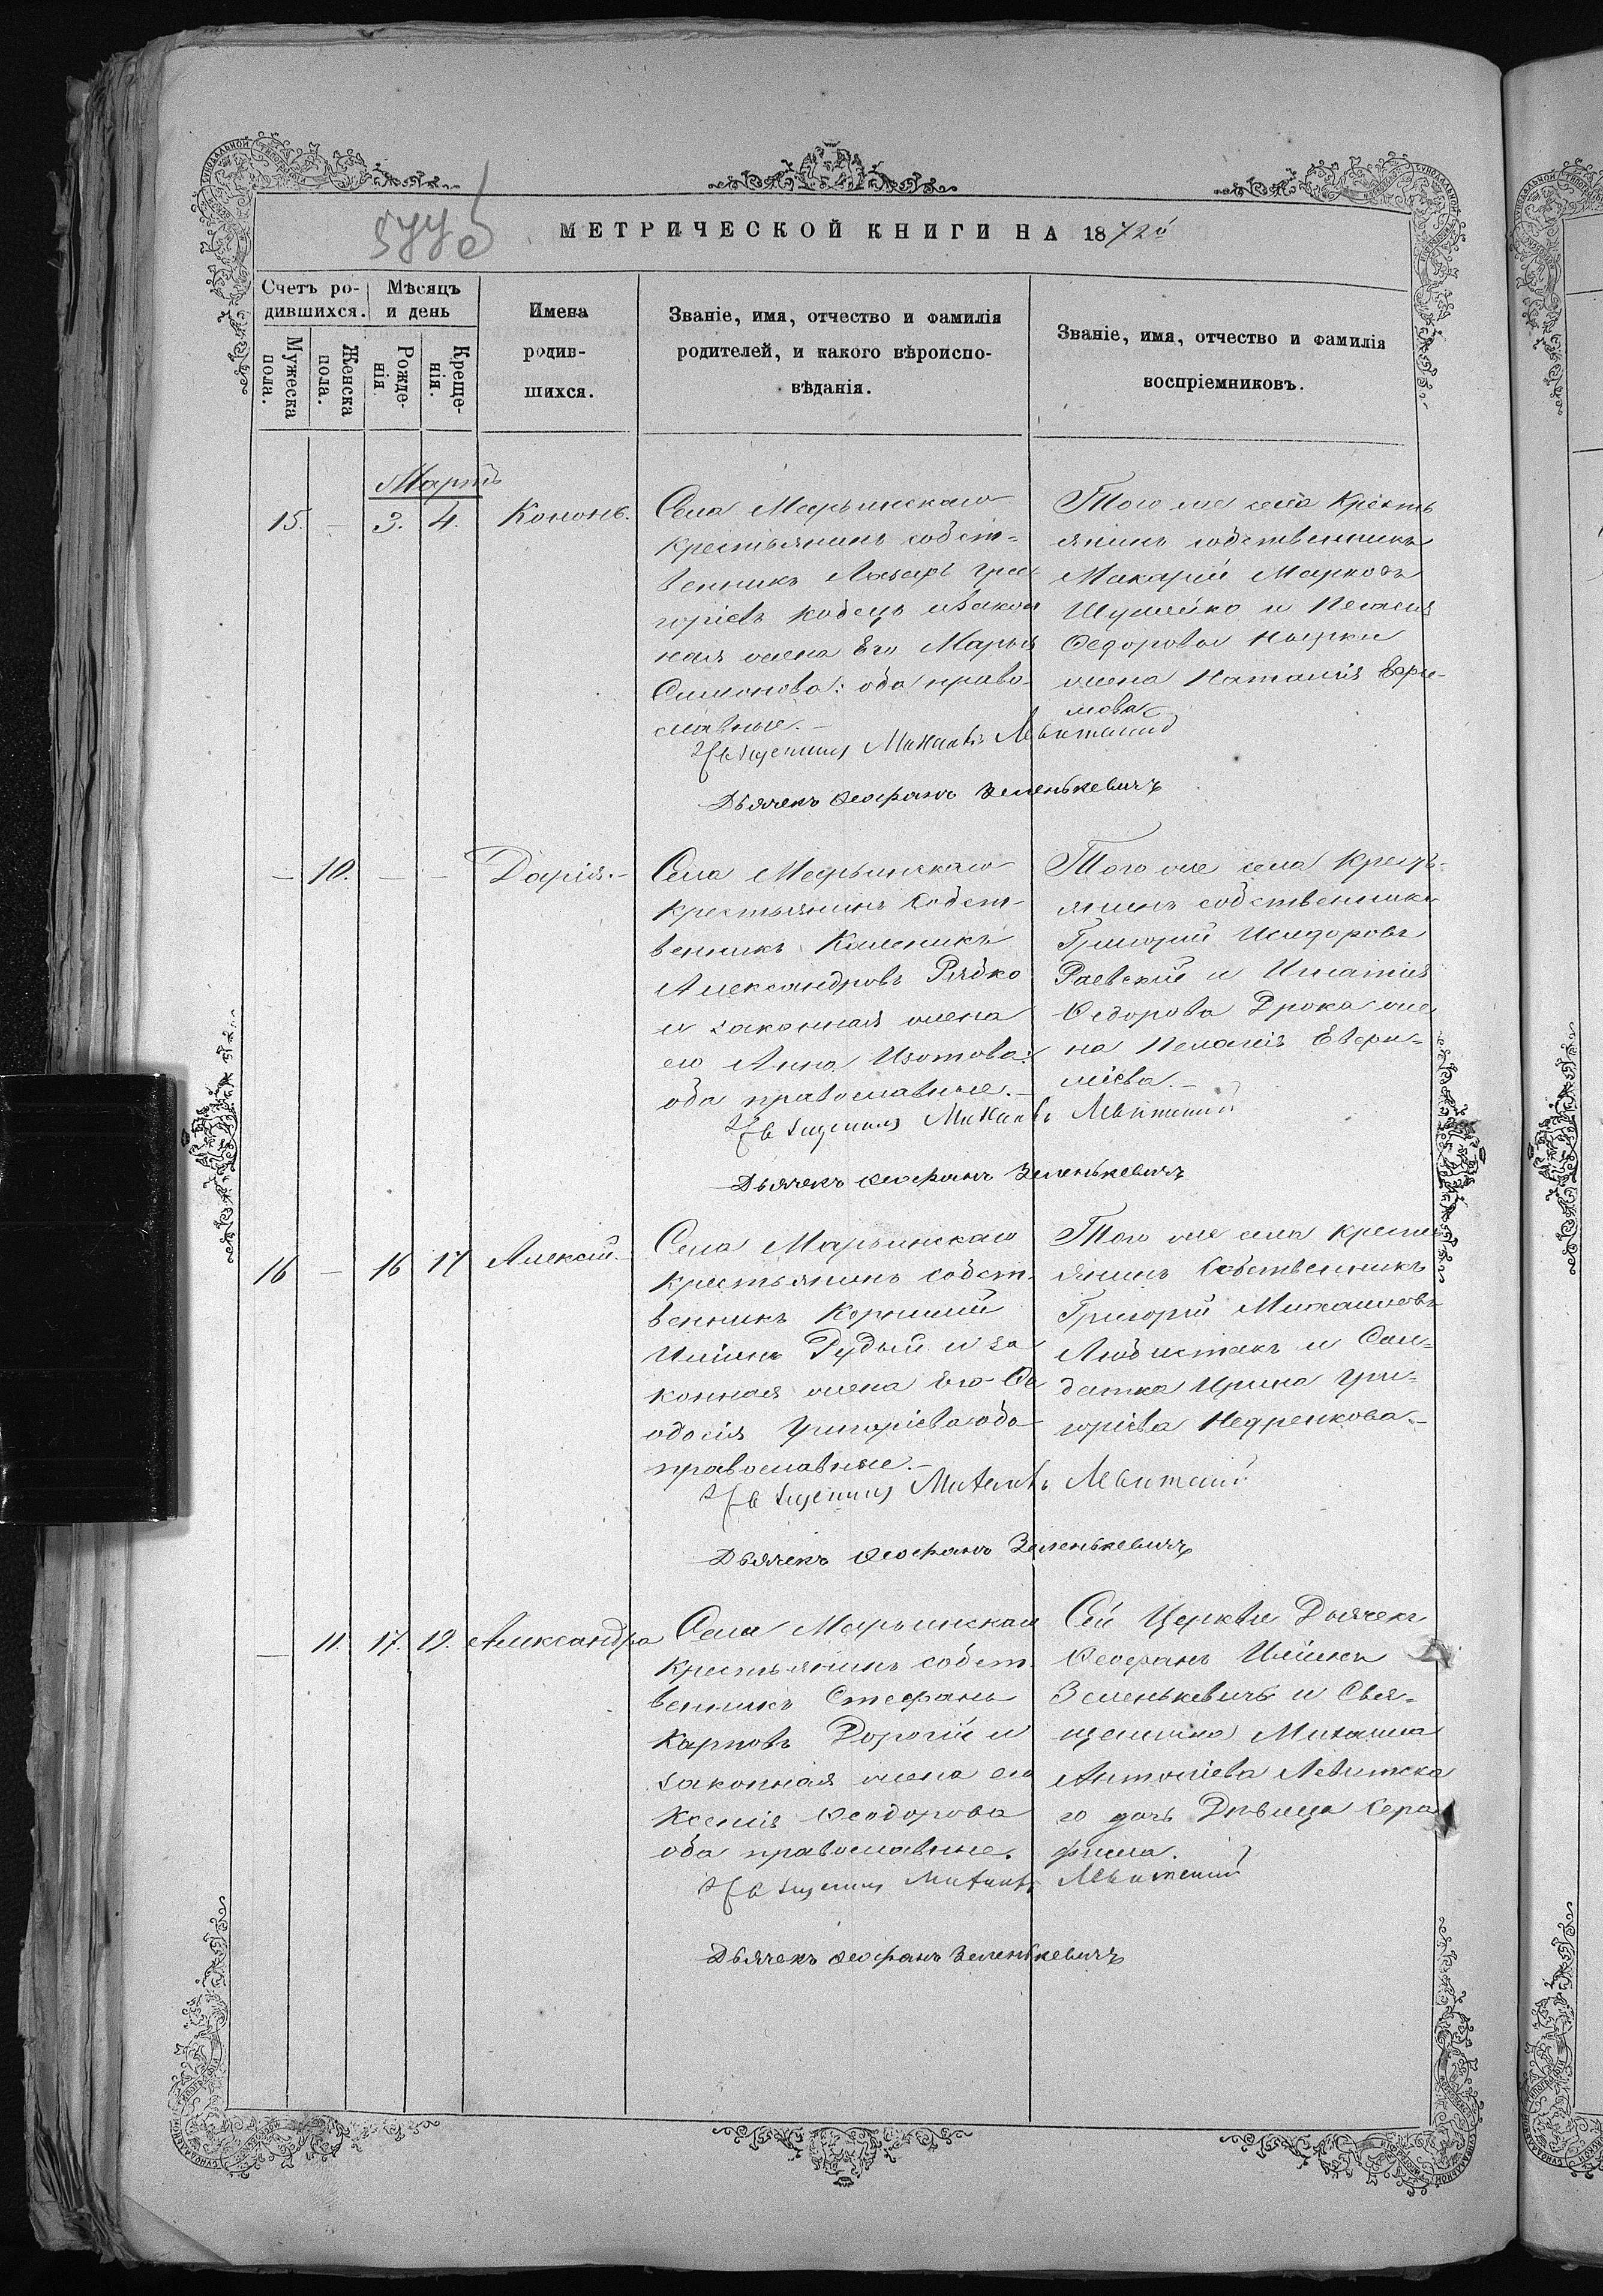 МЕТРИЧЕСКОЙ КНИГИ НА 1872й
Счетъ ро-
дившихся.
Мѣсяцъ
и день
Имена
родив-
шихся.
Званіе, имя, отчество и фамилія
родителей, и какого вѣроиспо-
вѣданія.
Званіе, имя, отчество и фамилія
воспріемниковъ.
Мужеска
пола.
Женска
пола.
Рожде-
нія
Креще-
нія.
Мартъ
15. — 3. 4. Кононъ.
Села Марьинскаго
крестьянинъ собст-
венникъ Лазарь Гри-
горіевъ Кобецъ и закон
ная жена его Марья
Симонова: оба право-
славные.—
Того же села Кресть
янинъ собственникъ
Макарій Марковъ
Шумейко и
Ѳедоровы
жена Наталія Ефи-
мова
Священникъ Михаилъ Левитскій
Дьячекъ Ѳеофанъ Зеленькевичъ
— 10. — — Дарія.—
Села Марьинскаго
крестьянинъ собст-
венникъ Каленикъ
Александровъ Рябко
и законная жена
его Анна Изотова:
оба православные.—
Того же села Крест-
янинъ собственникъ
Григорій Исидоровъ
Раевскій и Игнатія
Ѳедорова Дрока же
на Пелагія Евфи-
міева.—
Священникъ Михаилъ Левитскій
Дьячекъ Ѳеофанъ Зеленькевичъ
16 — 16 17 Алексій.
Села Марьинскаго
крестьянинъ собст-
венникъ Корнилій
Иліинъ Рудый и за
конная жена его Ѳе
одосія Григоріева оба
православные.—
Того же села кресть
янинъ Собственникъ
Григорій Михаиловъ
Любистокъ и Сол-
датка Ирина Гри-
горіева Недренкова.—
Священникъ Михаилъ Левитскій
Дьячекъ Ѳеофанъ Зеленькевичъ
— 11. 17. 19. Александра
Села Марьинскаго
Крестьянинъ собст-
венникъ Стефанъ
Карповъ Дорогій и
законная жена его
Ксенія Ѳеодорова
оба православные.
Сей Церкви Дьячекъ
Ѳеофанъ Иліинъ
Зеленькевичъ и Свя-
щенника Михаила
Антоніева Левитска
го дочь Дѣвица Сера
фима.
Священникъ Михаилъ Левитскій
Дьячекъ Ѳеофанъ Зеленькевичъ